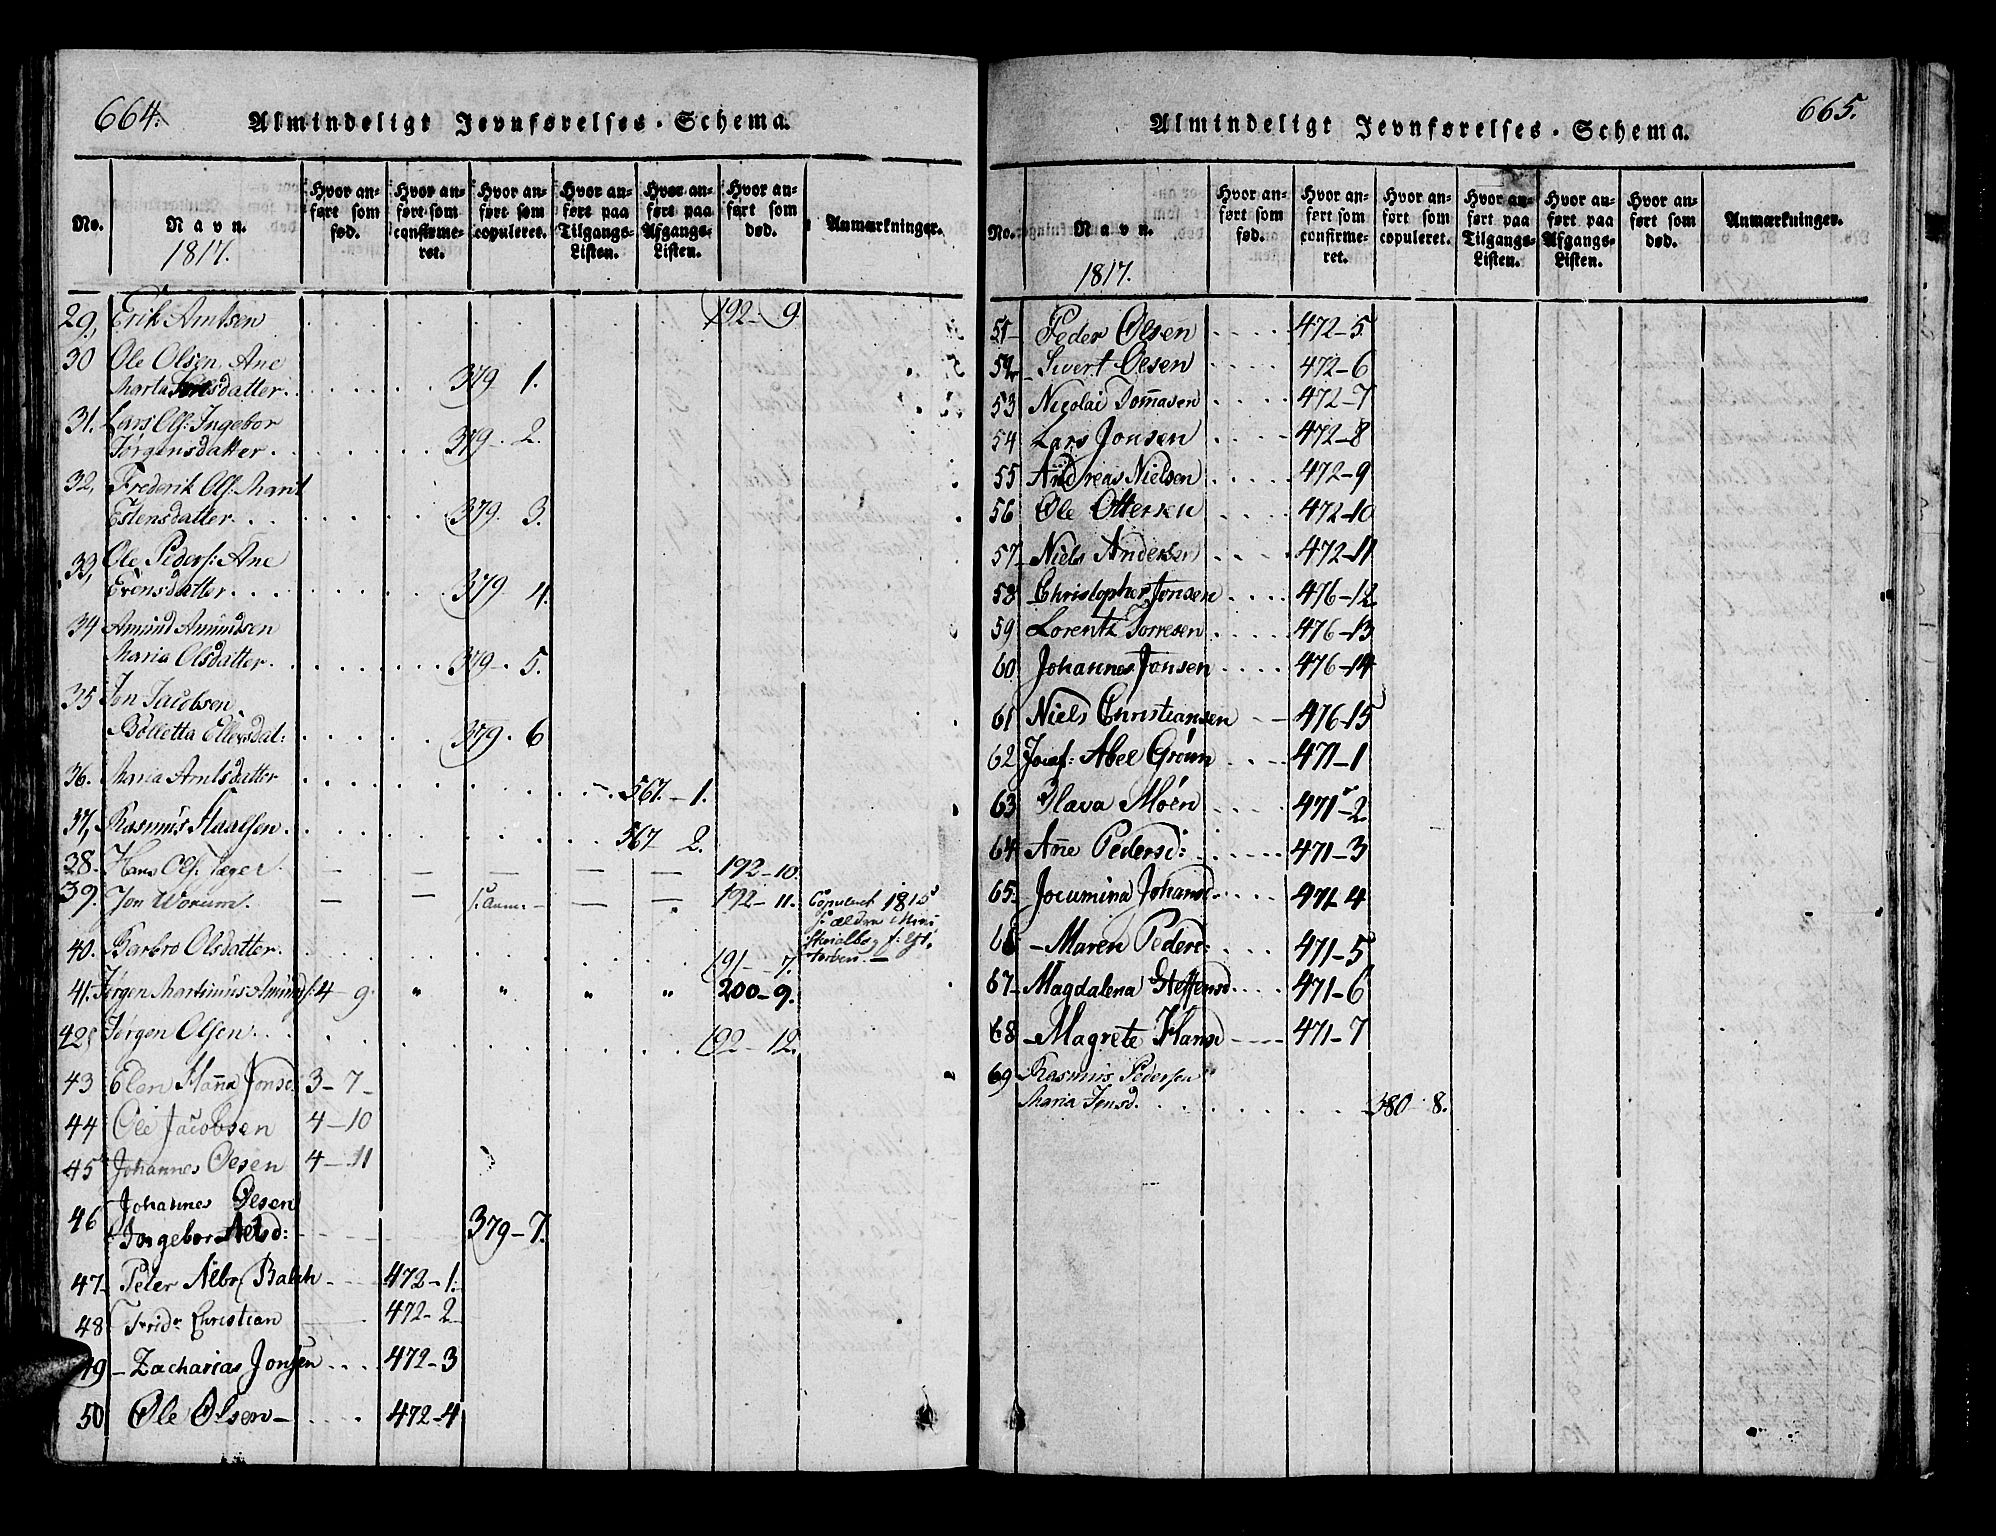 664.
Almindeligt Jevnførelses-Schema.
No.
Navn.
1817.
Hvor anført som fød.
Hvor anført som confirmeret.
Hvor anført som copuleret.
Hvor anført paa Tilgangs-Listen.
Hvor anført paa Afgangs-Listen.
Hvor anført som død.
Anmærkninger.
29, Erik Arntsen 192 - 9
30 Ole Olsen Ane
Marta datter. 379 1.
31. Lars Ols: Ingebor
Jørgensdatter. 379. 2.
32, Frederik Ols: Marit
Estensdatter. 379. 3.
33, Ole Peders: Ane
Evensdatter. 379. 4.
34 Amund Amundsen
Maria Olsdatter. 379. 5.
35 Jon Jacobsen
Bolletta Ellersdat: 379. 6
36. Maria Arntsdatter 567. - 1.
37, Rasmus 567 2.
38. Hans Ols: Jæger. — — — — — 192-10.
39. Jon Worum. — — s: Anm: - — — 192-11. Copuleret 1815
40. Barbro Olsdatter. 191 - 7.
41. Jørgen Martinus Amunds: 4 - 9. " " " " 200-9.
42, Jørgen Olsen 192 - 12.
43 Elen Hanna Jonsd: 3 - 7 -
44 Ole Jacobsen 4 - 10
45 Johannes Olsen 4 - 11
46 Johannes Olsen
Ingebor 379 - 7.
47- Peter Albr. Balch 472 - 1.
48 Fridr. Christian 472 - 2
49 - Zacharias Jonsen 472 - 3
50 Ole Olsen - 472 - 4
665.
Almindeligt Jevnførelses-Schema.
No.
Navn.
1817.
Hvor anført som fød.
Hvor anført som confirmeret.
Hvor anført som copuleret.
Hvor anført paa Tilgangs-Listen.
Hvor anført paa Afgangs-Listen.
Hvor anført som død.
Anmærkninger.
51- Peder Olsen 472-5
52 Sivert Olsen 472-6
53 Nicolai Tomasen 472-7
54 Lars Jonsen 472-8
55 Andreas Nielsen 472-9
56 Ole Ottersen 472-10
57- Niels Andersen 472-11
58 Christopher Jonsen 476-12
59 Lorentz Torresen 476-13
60 Johannes Jonsen 476-14
61 Niels Christiansen 476-15
62 Josef: Abel Grøun 471-1
63 Olava Moen 471-2
64 Ane Pedersd: 471-3
65. Jocumina Johansd. 471-4
66 - Maren Pedersd: 471-5
67- Magdalena Steffensd. 471-6
68 - Magrete Hansd 471-7
69 Rasmus Pedersen
Maria Jensd. 380 8.